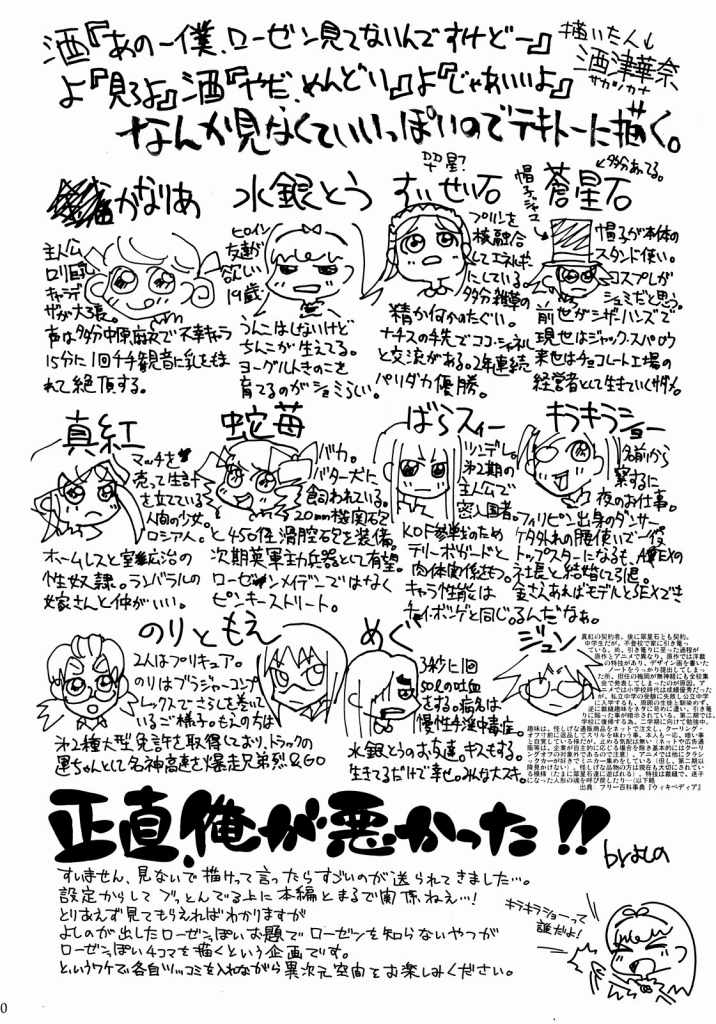 酒『あのー僕、ローゼン見てないんですけどー』
よ『見ろよ』酒『やだ、めんどい』よ『じゃあいいよ』
なんか見なくていいっぽいのでテキトーに描く。
描いた人↓
酒津華奈
サカツカナ
かなりあ
主人公
ロリ巨乳
キャラデ
ザが大暴。
声は多分中原麻衣で不幸キャラ
15分に1回千手観音に乳をほ
れて絶頂する。
水銀とう
ヒロイン
友達が
欲しい
19歳
うんこはしないけど
ちんこが生えてる。
ヨーグルトきのこを
育てるのがシュミらしい。
翠星?
すいせい石
プリンを
核融合
してエネルギー
にしている。
多分雑草の
精か何かのたぐい。
ナチスの手先でココ・シャネル
と交流がある。2年連続
パリダカ優勝。
←多分あってる。
蒼星石
帽子ジャンゴ
帽子が本体の
スタンド使い。
コスプレが
シュミだと思う。
前世がシザーハンズで
現世はジャック・スパロウ
来世はチョコレート工場の
経営者として生きていくサダメ。
真紅
マッチを
売って生計
を立てている
人間の少女。
ロシア人。
ホームレスと室広治の
性奴隷。ランバラルの
嫁さんと仲がいい。
蛇苺
バカ。
バターズに
飼われている。
20mm機関砲
と450径滑腔砲を装備。
次期英軍主力兵器として有望。
ローゼンメイデンではなく
ピンキーストリート。
ばらスィー
ツンデレ。
第2期の
主人公で
密入国者。
KOF参戦のため
テリーボガードと
肉体関係をもつ。
キャラ性能は
チャイ・ボンゲと同じ。
キラキラショー
名前から
察するに
夜のお仕事。
フィリピン出身のダンサー
ケタ外れの腰使いで一役
トップスターになるも、A○EXの
社長と結婚して引退。
金さえあればモデルとSEXでき
るんだなぁ。
のりともえ
2人はプリキュア。
のりはブラジャーコンプ
レックスでさらしを巻いて
いるご様子。もえの方は
第2種大型免許を取得しており、トラックの
運ちゃんとして名神高速を爆走兄弟烈&GO
めぐ
3秒に1回
50lの吐血
をする。病名は
慢性手淫中毒症。
水銀とうのお友達。キスもする。
生きてるだけで幸せ。みんな大スキ。
ジュン
真紅の契約者。後に翠星石とも契約。
中学生だが、不登校で家に引き篭っ
ている。尚、引き篭りに至った過程が
原作とアニメで異なり、原作では洋裁
の特技があり、デザイン画を書いた
ノートをうっかり提出してしまっ
た所、担任の梅岡が無神経にも全校集
会で発表してしまったのが原因。ア
ニメでは小学校時代は成績優秀だった
が、私立中学の受験に失敗し公立中学
に入学するも、周囲の生徒と馴染めず、
出典:フリー百科事典『ウィキペディア』
正直、俺が悪かった!!
すいません、見ないで描けって言ったらすごいのが送られてきました…。
設定からしてブッとんでる上に本編とまるで関係ねぇ…!
とりあえず見てもらえればわかりますが
よしのが出したローゼンっぽいお題でローゼンを知らないやつが
ローゼンっぽい4コマを描くという企画です。
というワケで各自ツッコミを入れながら異次元空間をお楽しみください。
キラキラショーって
誰だよ!
0